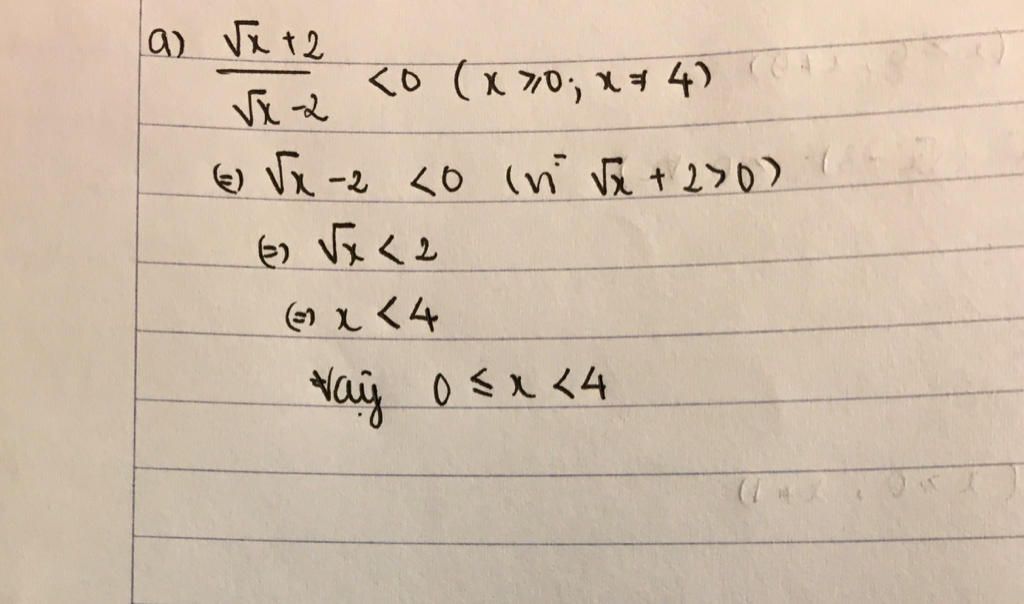 a) (√x + 2)/(√x - 2) < 0 (x ⩾ 0; x ≠ 4)
⇔ √x - 2 < 0 (vì √x + 2 > 0)
⇔ √x < 2
⇔ x < 4
Vậy 0 ≤ x < 4